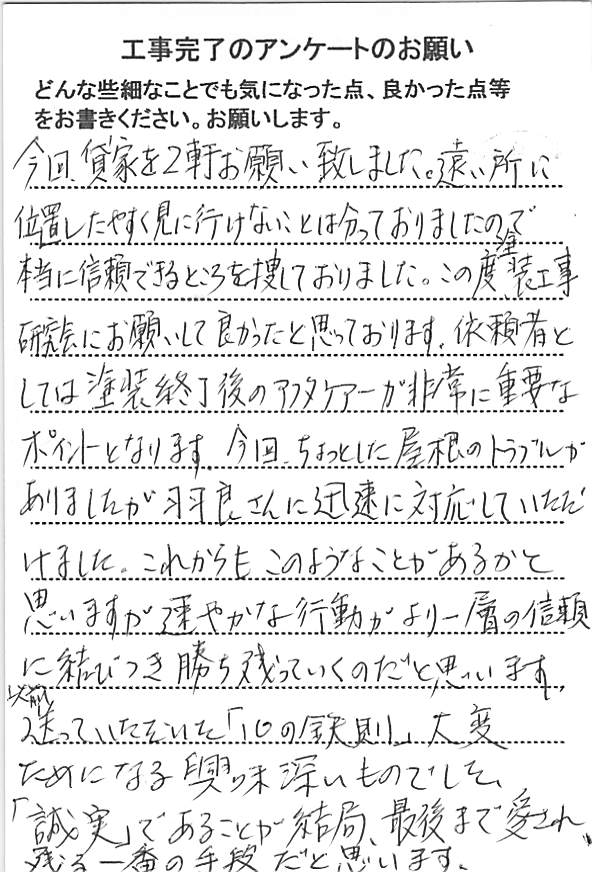 工事完了のアンケートのお願い
どんな些細なことでも気になった点、良かった点等
をお書きください。お願いします。
今回、貸家を2軒お願い致しました。遠い所に
位置したやすく見に行けないことは分っておりましたので
本当に信頼できるところを捜しておりました。この度塗装工事
研究会にお願いして良かったと思っております。依頼者と
しては塗装終了後のアフタケアーが非常に重要な
ポイントとなります。今回、ちょっとした屋根のトラブルが
ありましたが羽良さんに迅速に対応していただ
けました。これからもこのようなことがあるかと
思いますが速やかな行動がより一層の信頼
に結びつき勝ち残っていくのだと思います。
以前
送っていただいた「10の鉄則」大変
ためになる興味深いものでした。
「誠実」であることが結局、最後まで愛され
残る一番の手段だと思います。